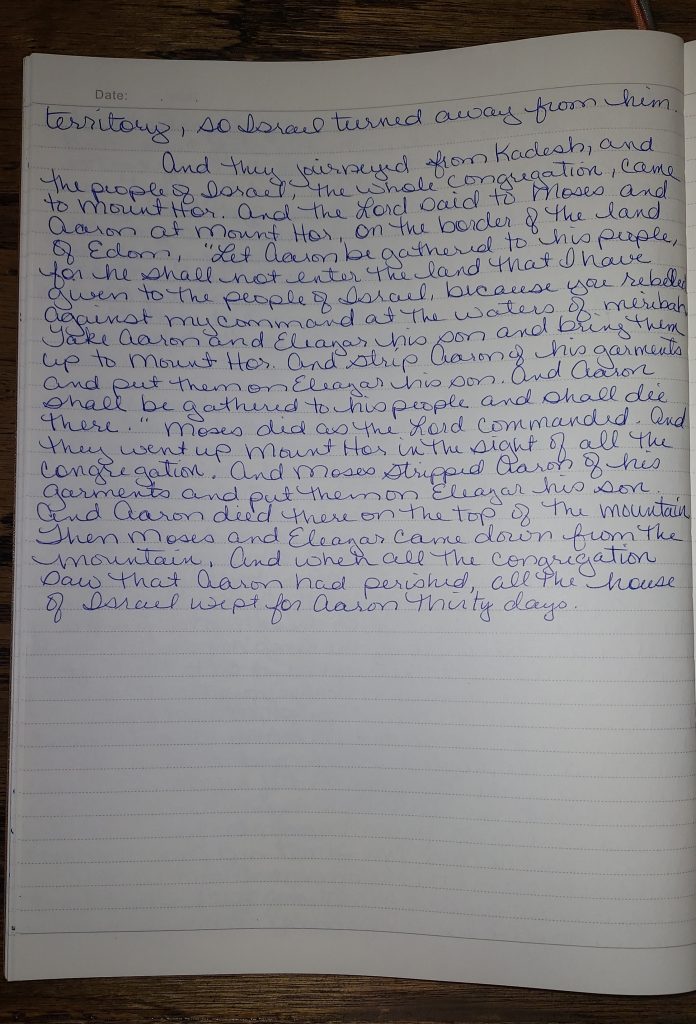 Date:
territory, so Israel turned away from him.
And they journeyed from Kadesh, and
the people of Israel, the whole congregation, came
to Mount Hor. And the Lord said to Moses and
Aaron at Mount Hor, on the border of the land
of Edom, "Let Aaron be gathered to his people,
for he shall not enter the land that I have
given to the people of Israel, because you rebelled
against my command at the waters of Meribah
Take Aaron and Eleazar his son and bring them
up to Mount Hor. And strip Aaron of his garments
and put them on Eleazar his son. And Aaron
shall be gathered to his people and shall die
there." Moses did as the Lord commanded. And
they went up Mount Hor in the sight of all the
congregation. And Moses stripped Aaron of his
garments and put them on Eleazar his son.
And Aaron died there on the top of the mountain
Then Moses and Eleazar came down from the
mountain. And when all the congregation
saw that Aaron had perished, all the house
of Israel wept for Aaron thirty days.